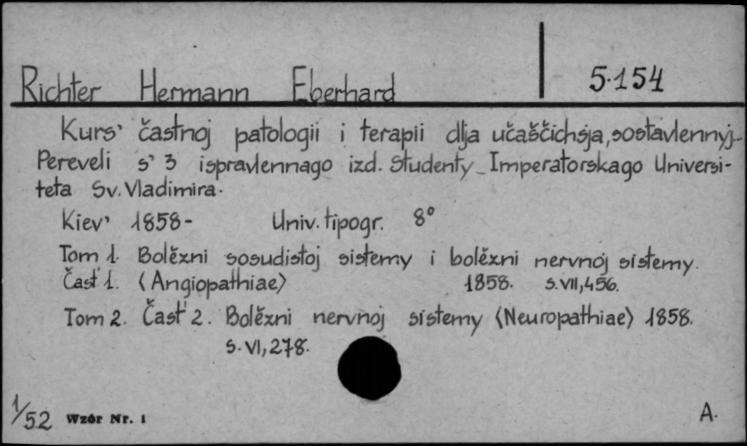 Richter Hermann Eberhard 5.154
Kurs' častnoj patologii i terapii dlja učaščichsja, sostavlennyj-
Pereveli s' 3 ispravlennago izd. Studenty Imperatorskago Universi-
teta Sv. Vladimira.
Kiev' 1858- Univ. tipogr. 8°
Tom 1. Bolězni sosudistoj sistemy i bolězni nervnoj sistemy.
Čast' 1. (Angiopathiae) 1858. s. VII, 456.
Tom 2. Čast' 2. Bolězni nervnoj sistemy (Neuropathiae) 1858.
s. VI, 278.
1/52 Wzór Nr. 1 A.